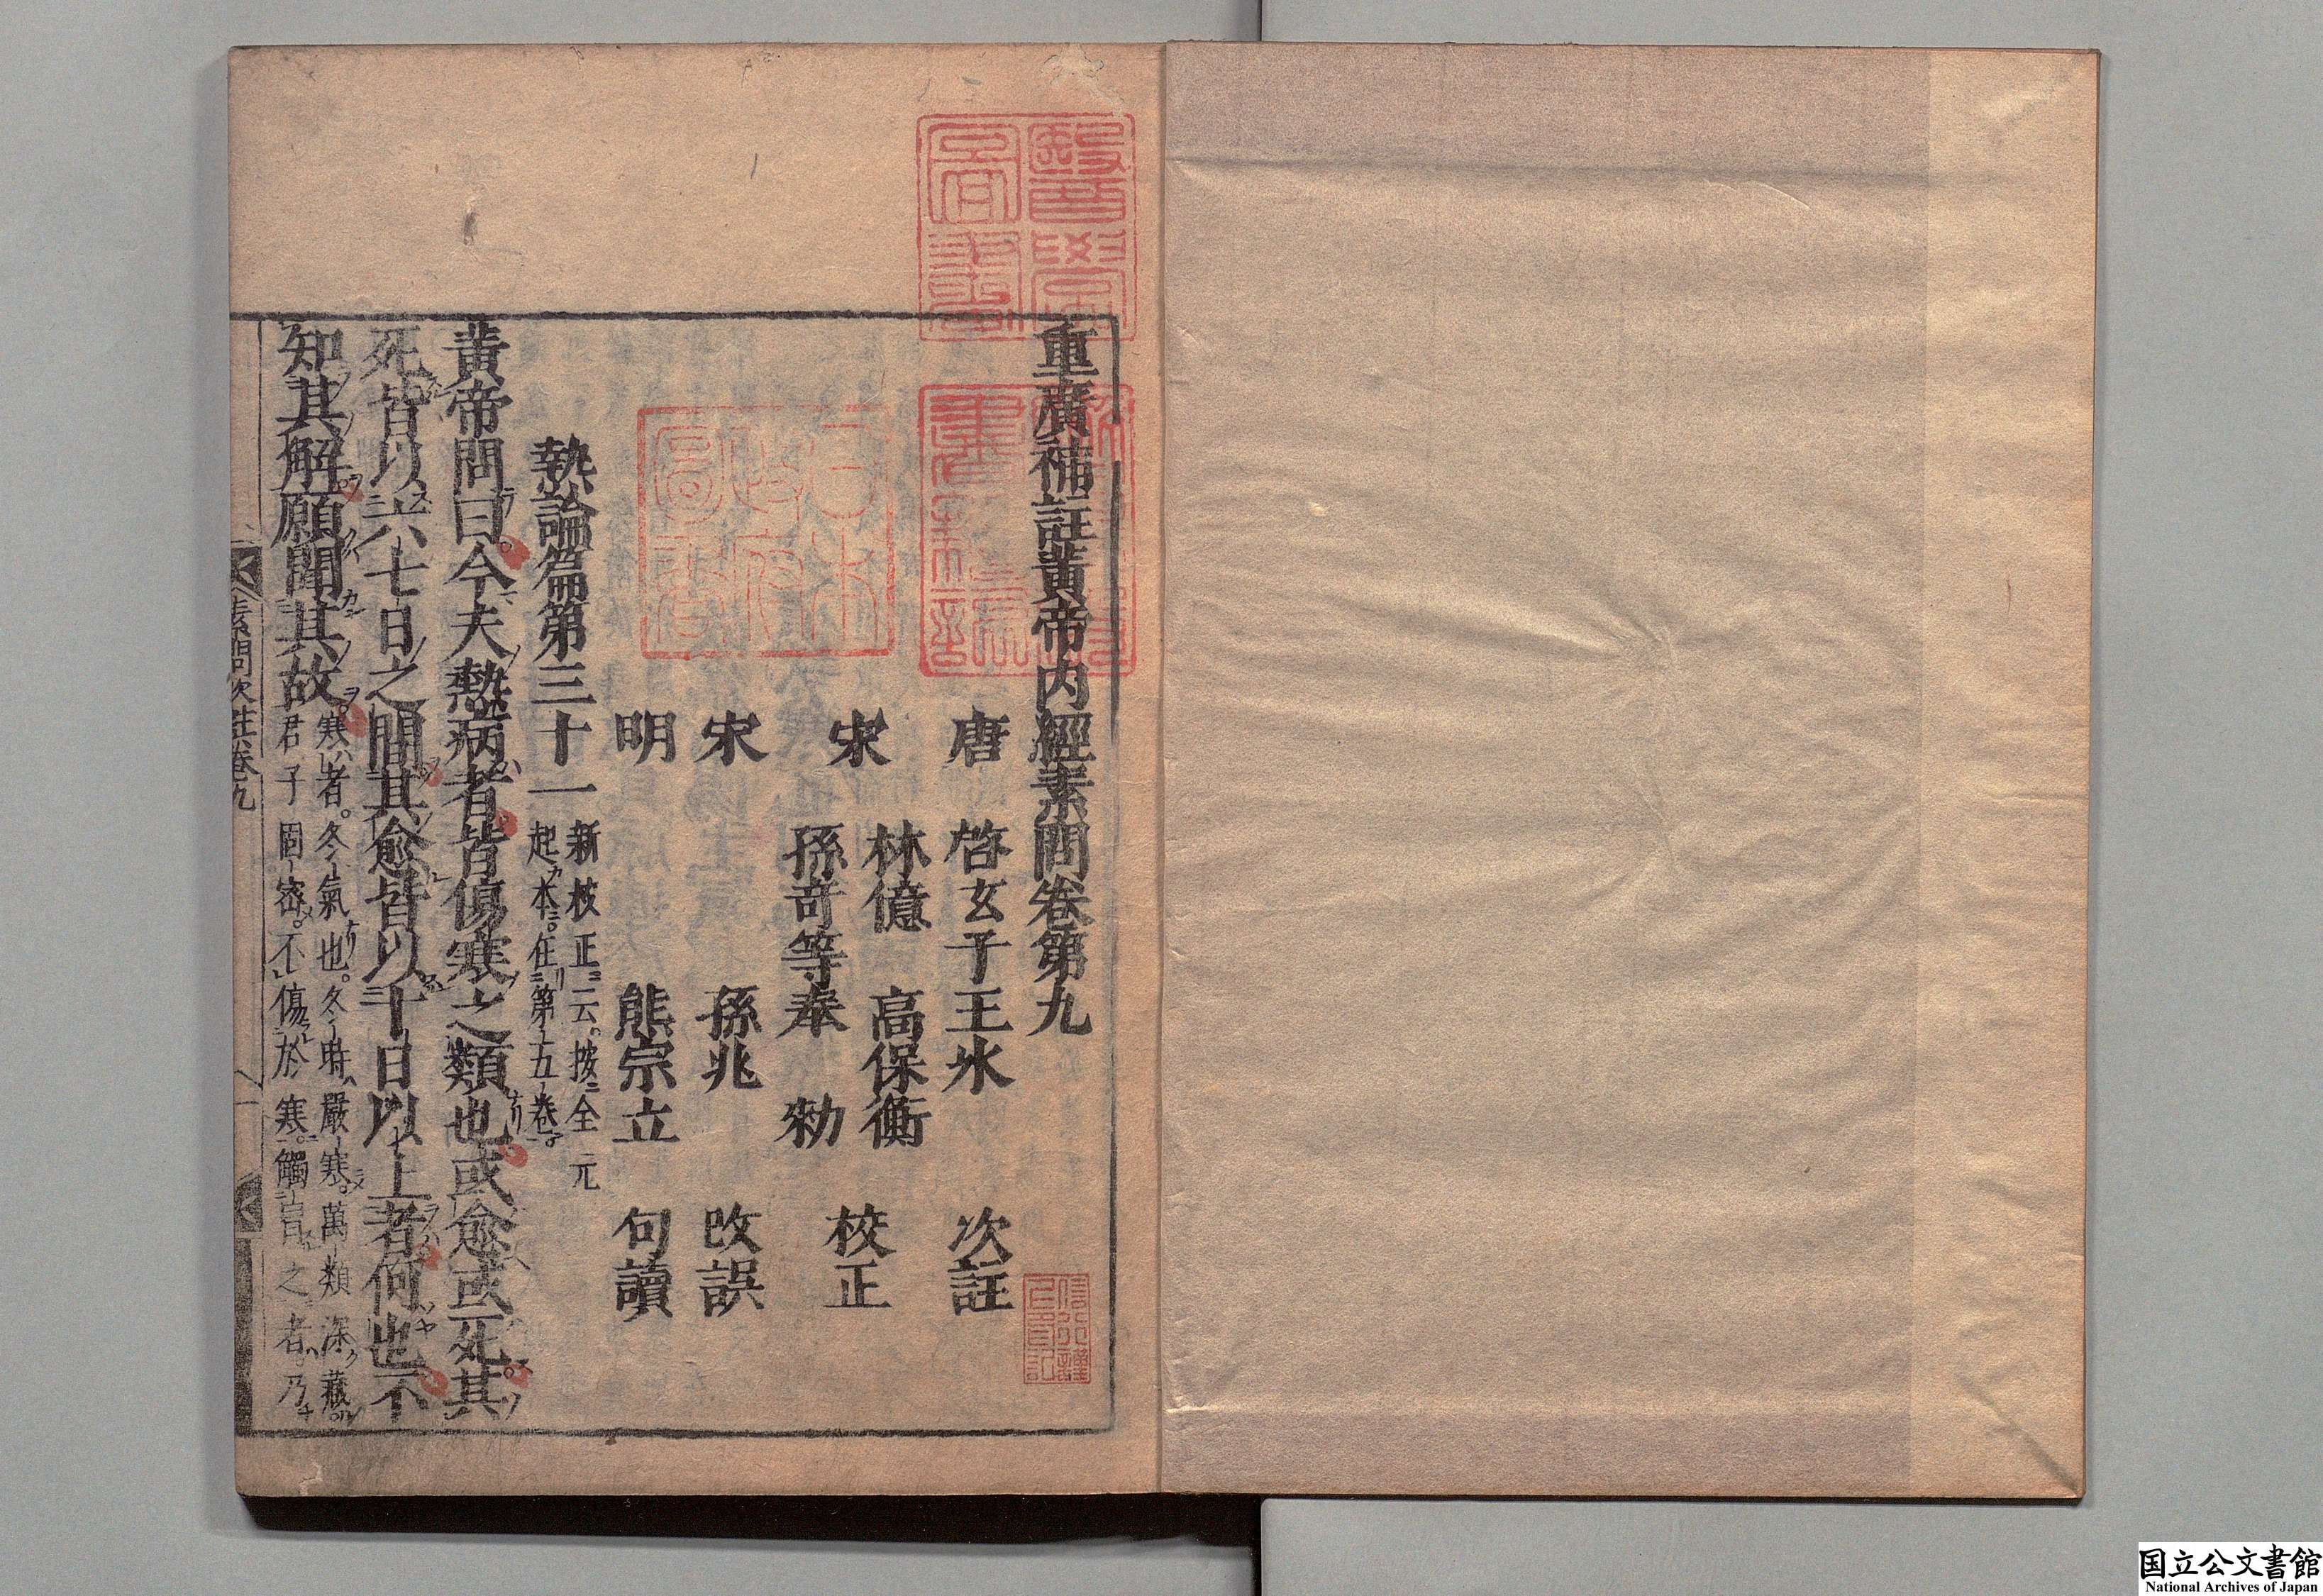 重廣補註黃帝内經素問卷第九
唐　啓玄子王氷　次註
宋　林億　高保衡
孫竒等奉　勑　校正
宋　孫兆　改誤
明　熊宗立　句讀
熱論篇第三十一
新校正云按全元
起本在第五卷
黃帝問曰今夫熱病者皆傷寒之類也或愈或死其
死皆以六七日之間其愈皆以十日以上者何也不
知其解願聞其故
寒者冬氣也冬時嚴寒萬類深藏
君子固密不傷於寒觸冒之者乃
素問次註卷九
一
醫學
圖書
国立公文書館
National Archives of Japan